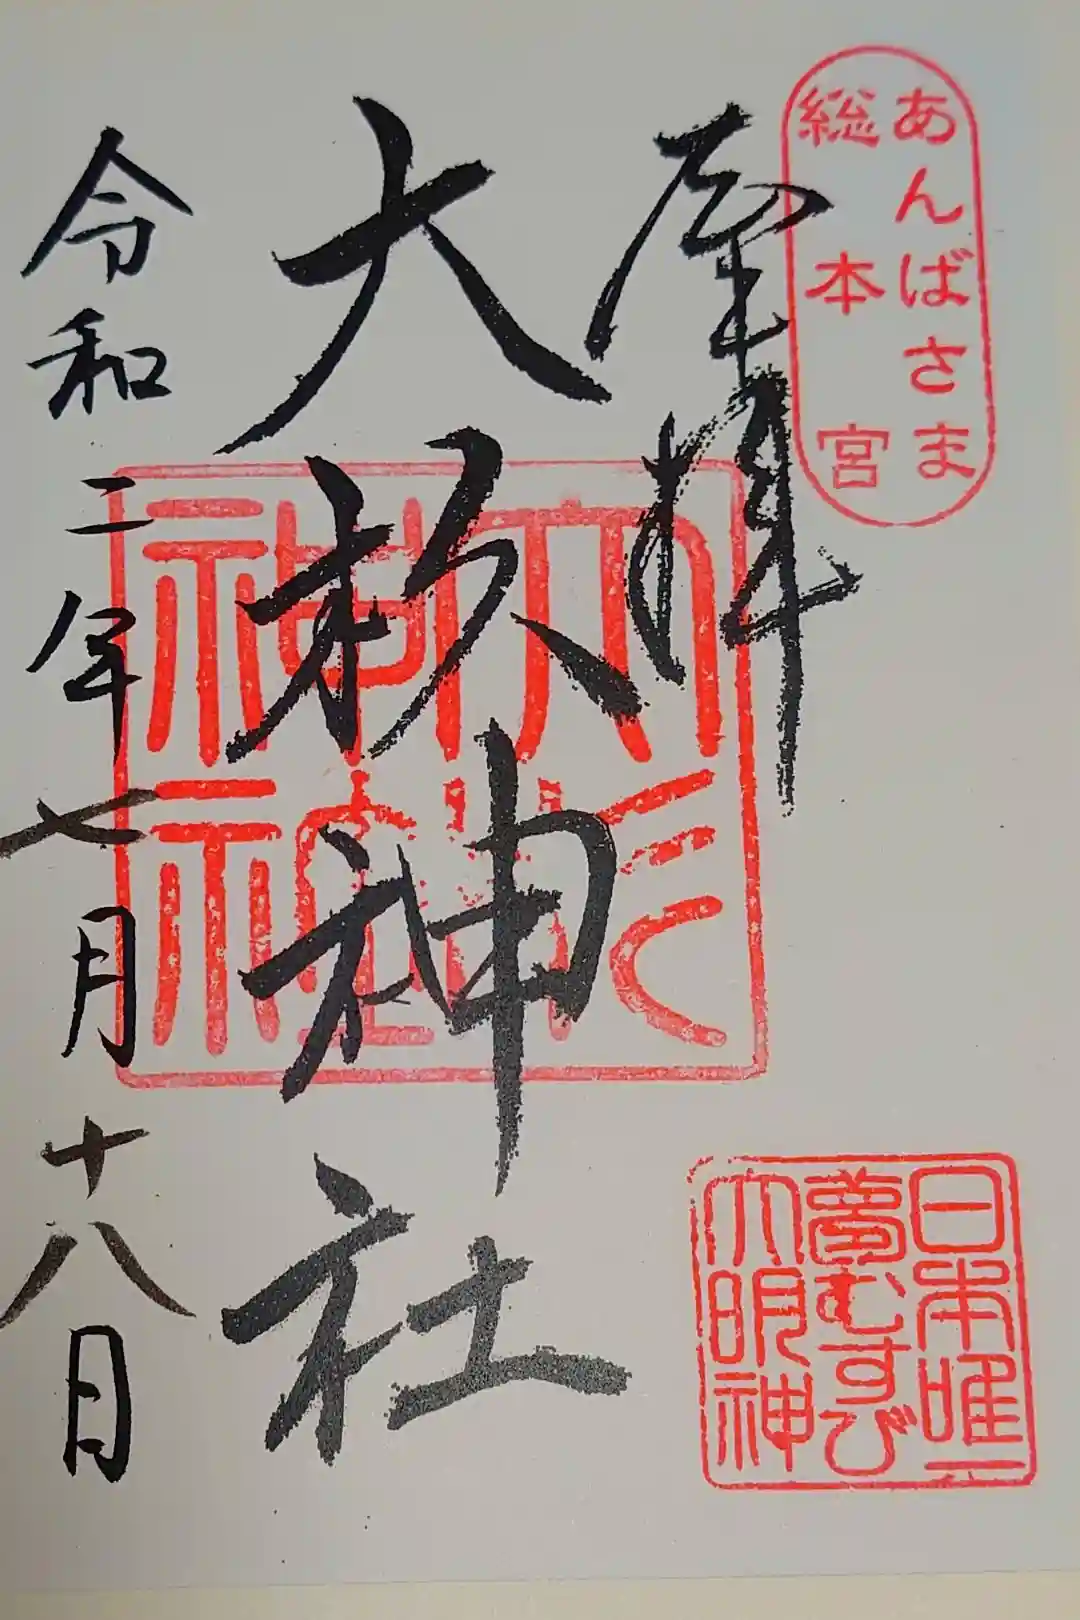 あんばさま
総本宮
奉拝
大杉神社
令和二年七月十八日
大杉
神社
日本唯一
夢むすび
大明神